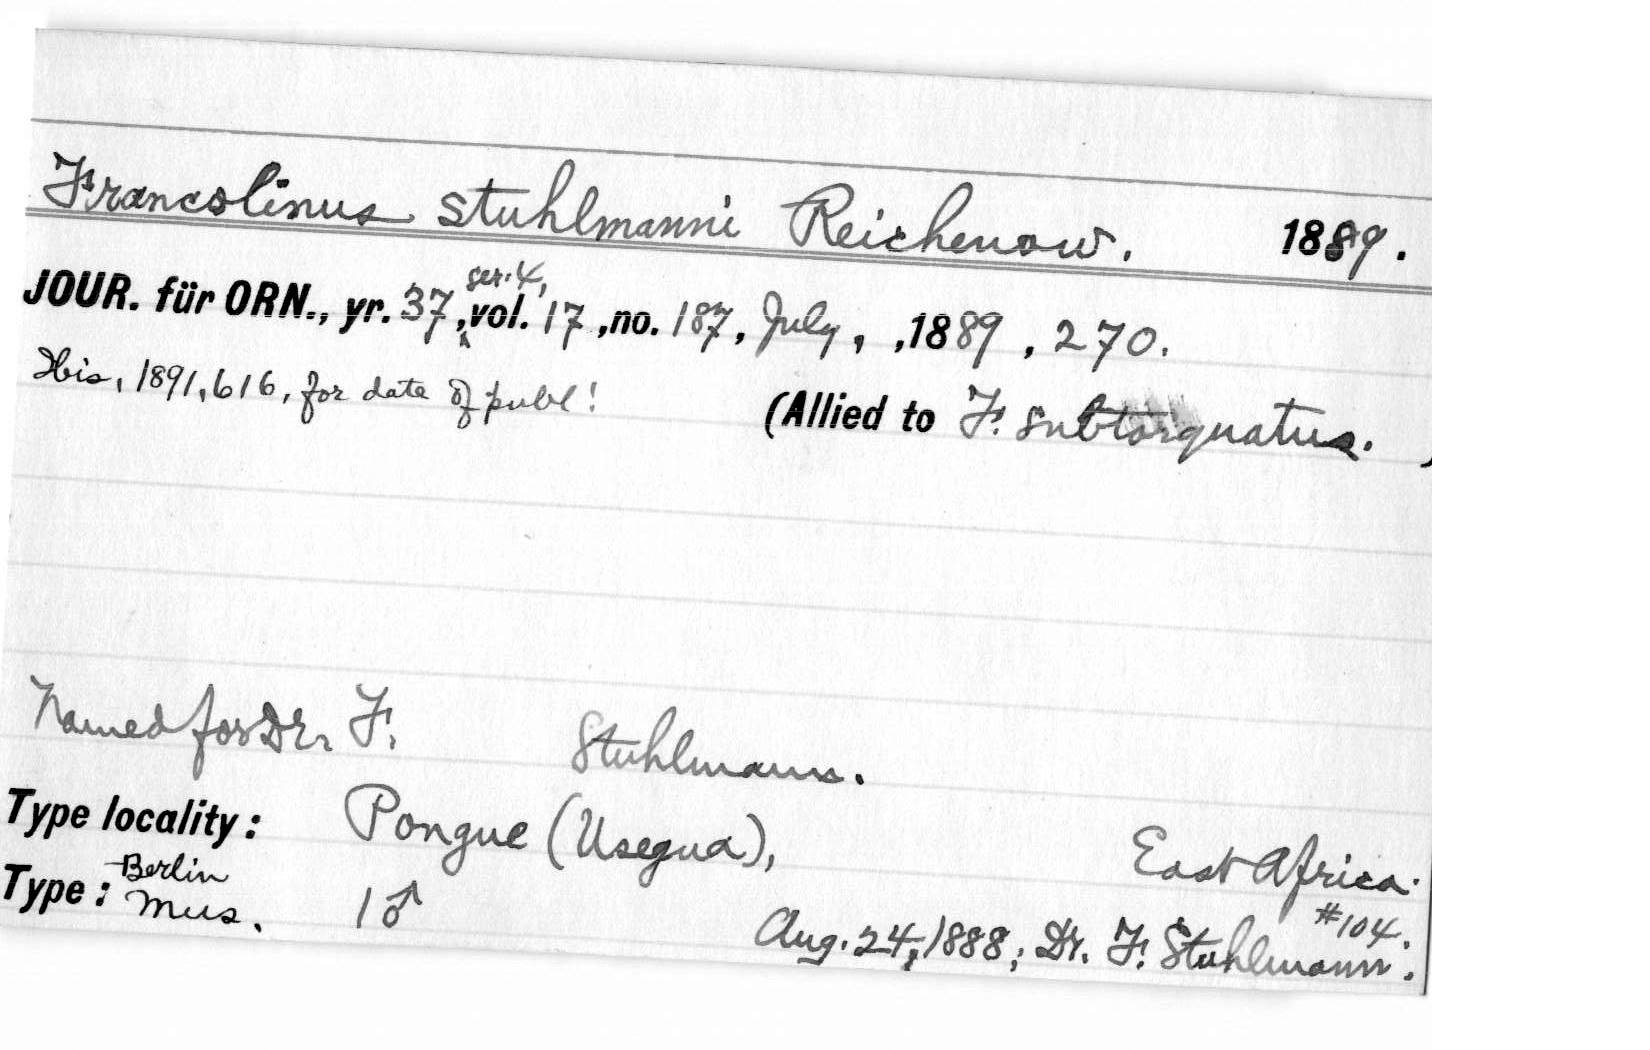 Francolinus stuhlmanni Reichenow. 1889.
JOUR. für ORN., yr. 37, ser. 4, vol. 17, no. 187, July, , 1889, 270.
Ibis, 1891, 616, for date of publ! (Allied to F. subtorquatus. )
Named for Dr. F. Stuhlmann.
Type locality: Pongue (Usegua), East Africa.
Type: Berlin Mus. 1♂ Aug. 24, 1888; Dr. F. Stuhlmann. #104.